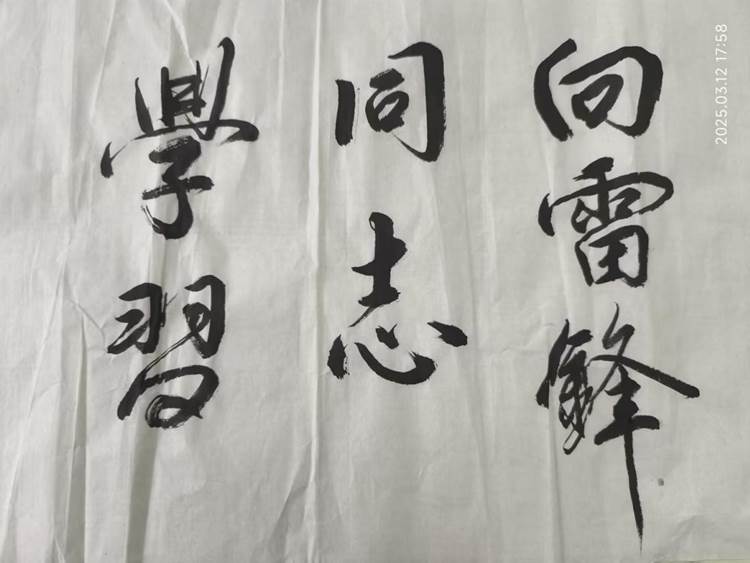 向雷鋒
同志
學習
2025.03.12 17:58